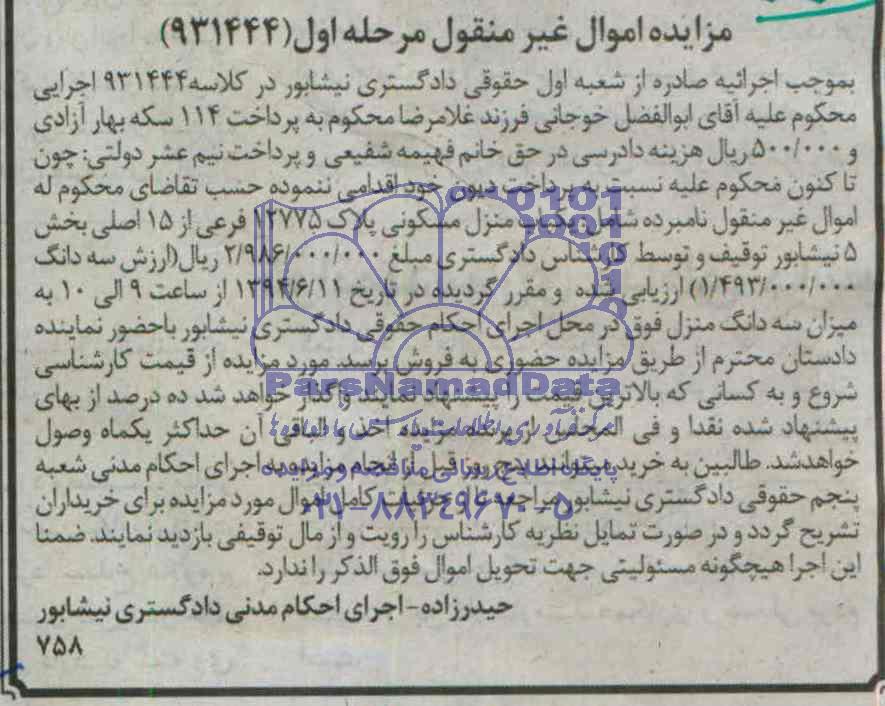 مزایده اموال غیر منقول مرحله اول(۹۳۱۴۴۴)
بموجب اجرائیه صادره از شعبه اول حقوقی دادگستری نیشابور در کلاسه۹۳۱۴۴۴ اجرایی
محکوم علیه آقای ابوالفضل خوجانی فرزند غلامرضا محکوم به پرداخت ۱۱۴ سکه بهار آزادی
و ۵۰۰/۰۰۰ ریال هزینه دادرسی در حق خانم فهیمه شفیعی و پرداخت نیم عشر دولتی؛ چون
تا کنون محکوم علیه نسبت به پرداخت دیون خود اقدامی ننموده حسب تقاضای محکوم له
اموال غیر منقول نامبرده شامل یکباب منزل مسکونی پلاک ۱۲۷۷۵ فرعی از ۱۵ اصلی بخش
۵ نیشابور توقیف و توسط کارشناس دادگستری مبلغ ۲/۹۸۶/۰۰۰/۰۰۰ ریال(ارزش سه دانگ
۱/۴۹۳/۰۰۰/۰۰۰) ارزیابی شده و مقرر گردیده در تاریخ ۱۳۹۴/۶/۱۱ از ساعت ۹ الی ۱۰ به
میزان سه دانگ منزل فوق در محل اجرای احکام حقوقی دادگستری نیشابور باحضور نماینده
دادستان محترم از طریق مزایده حضوری به فروش برسد. مورد مزایده از قیمت کارشناسی
شروع و به کسانی که بالاترین قیمت را پیشنهاد نمایند واگذار خواهد شد ده درصد از بهای
پیشنهاد شده نقدا و فی المجلس از برنده مزایده اخذ و الباقی آن حداکثر یکماه وصول
خواهدشد. طالبین به خرید میتوانند پنج روز قبل از انجام مزایده به اجرای احکام مدنی شعبه
پنجم حقوقی دادگستری نیشابور مراجعه تا جزئیات کامل اموال مورد مزایده برای خریداران
تشریح گردد و در صورت تمایل نظریه کارشناس را رویت و از مال توقیفی بازدید نمایند. ضمنا
این اجرا هیچگونه مسئولیتی جهت تحویل اموال فوق الذکر را ندارد.
حیدرزاده-اجرای احکام مدنی دادگستری نیشابور
۷۵۸
ParsNamadData
پایگاه اطلاع رسانی مناقصه و مزایده
۰۲۱-۸۸۳۴۹۶۷۰-۵